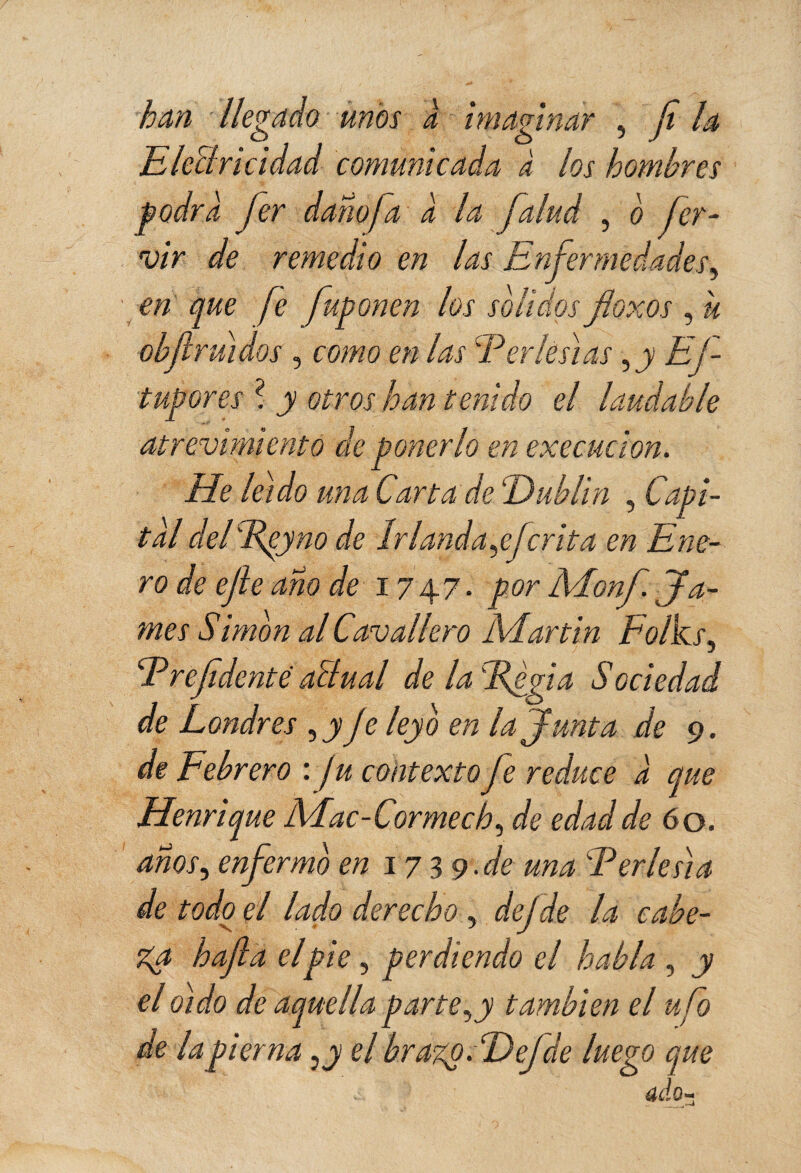 han llegado unos à imaginar , ſi la
Electricidad comunicada à los hombres
podrà ſer dañoſa à la ſalud , ò ſer-
vir de remedio en las Enfermedades,
en que ſe ſuponen los sòlidos floxos , ù
obſtruìdos , como en las Perlesìas , y Eſ-
tupores ? y otros han tenido el laudable
atrevimiento de ponerlo en execucion.
He leìdo una Carta de Dublin , Capi-
tàl del Reyno de Irlanda, eſcrita en Ene-
ro de eſte año de 1747. por Monſ. Ja-
mes Simòn al Cavallero Martin Folks,
Preſidente actual de la Règia Sociedad
de Londres , y ſe leyò en la Junta de 9.
de Febrero : ſu contexto ſe reduce à que
Henrique Mac-Cormech, de edad de 60.
años, enfermò en 1739. de una Perlesìa
de todo el lado derecho , deſde la cabe-
za haſta el pie , perdiendo el habla , y
el oìdo de aquella parte, y tambien el uſo
de la pierna , y el brazo. Deſde luego que
ado-